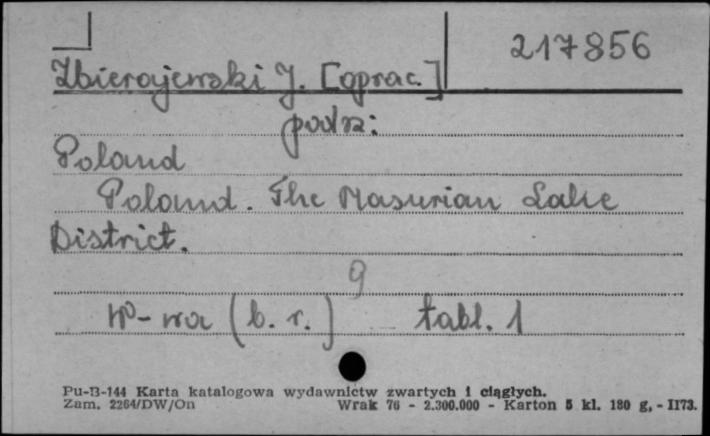 217856
Zbierajewski J. [oprac.]
podz:
Poland
Poland. The Masurian Lake
District.
9
W-wa (b. r.) tabl. 1
Pu-B-144 Karta katalogowa wydawnictw zwartych i ciągłych.
Zam. 2264/DW/On Wrak 76 - 2.300.000 - Karton 5 kl. 180 g, - II73.